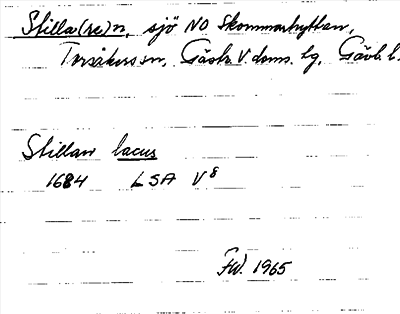 Stilla(re)n, sjö NO Skommarhyttan,
Torsåkers sn, Gästr. V. doms. tg, Gävl. l.
Stillan lacus
1684 LSA V8
FW. 1965